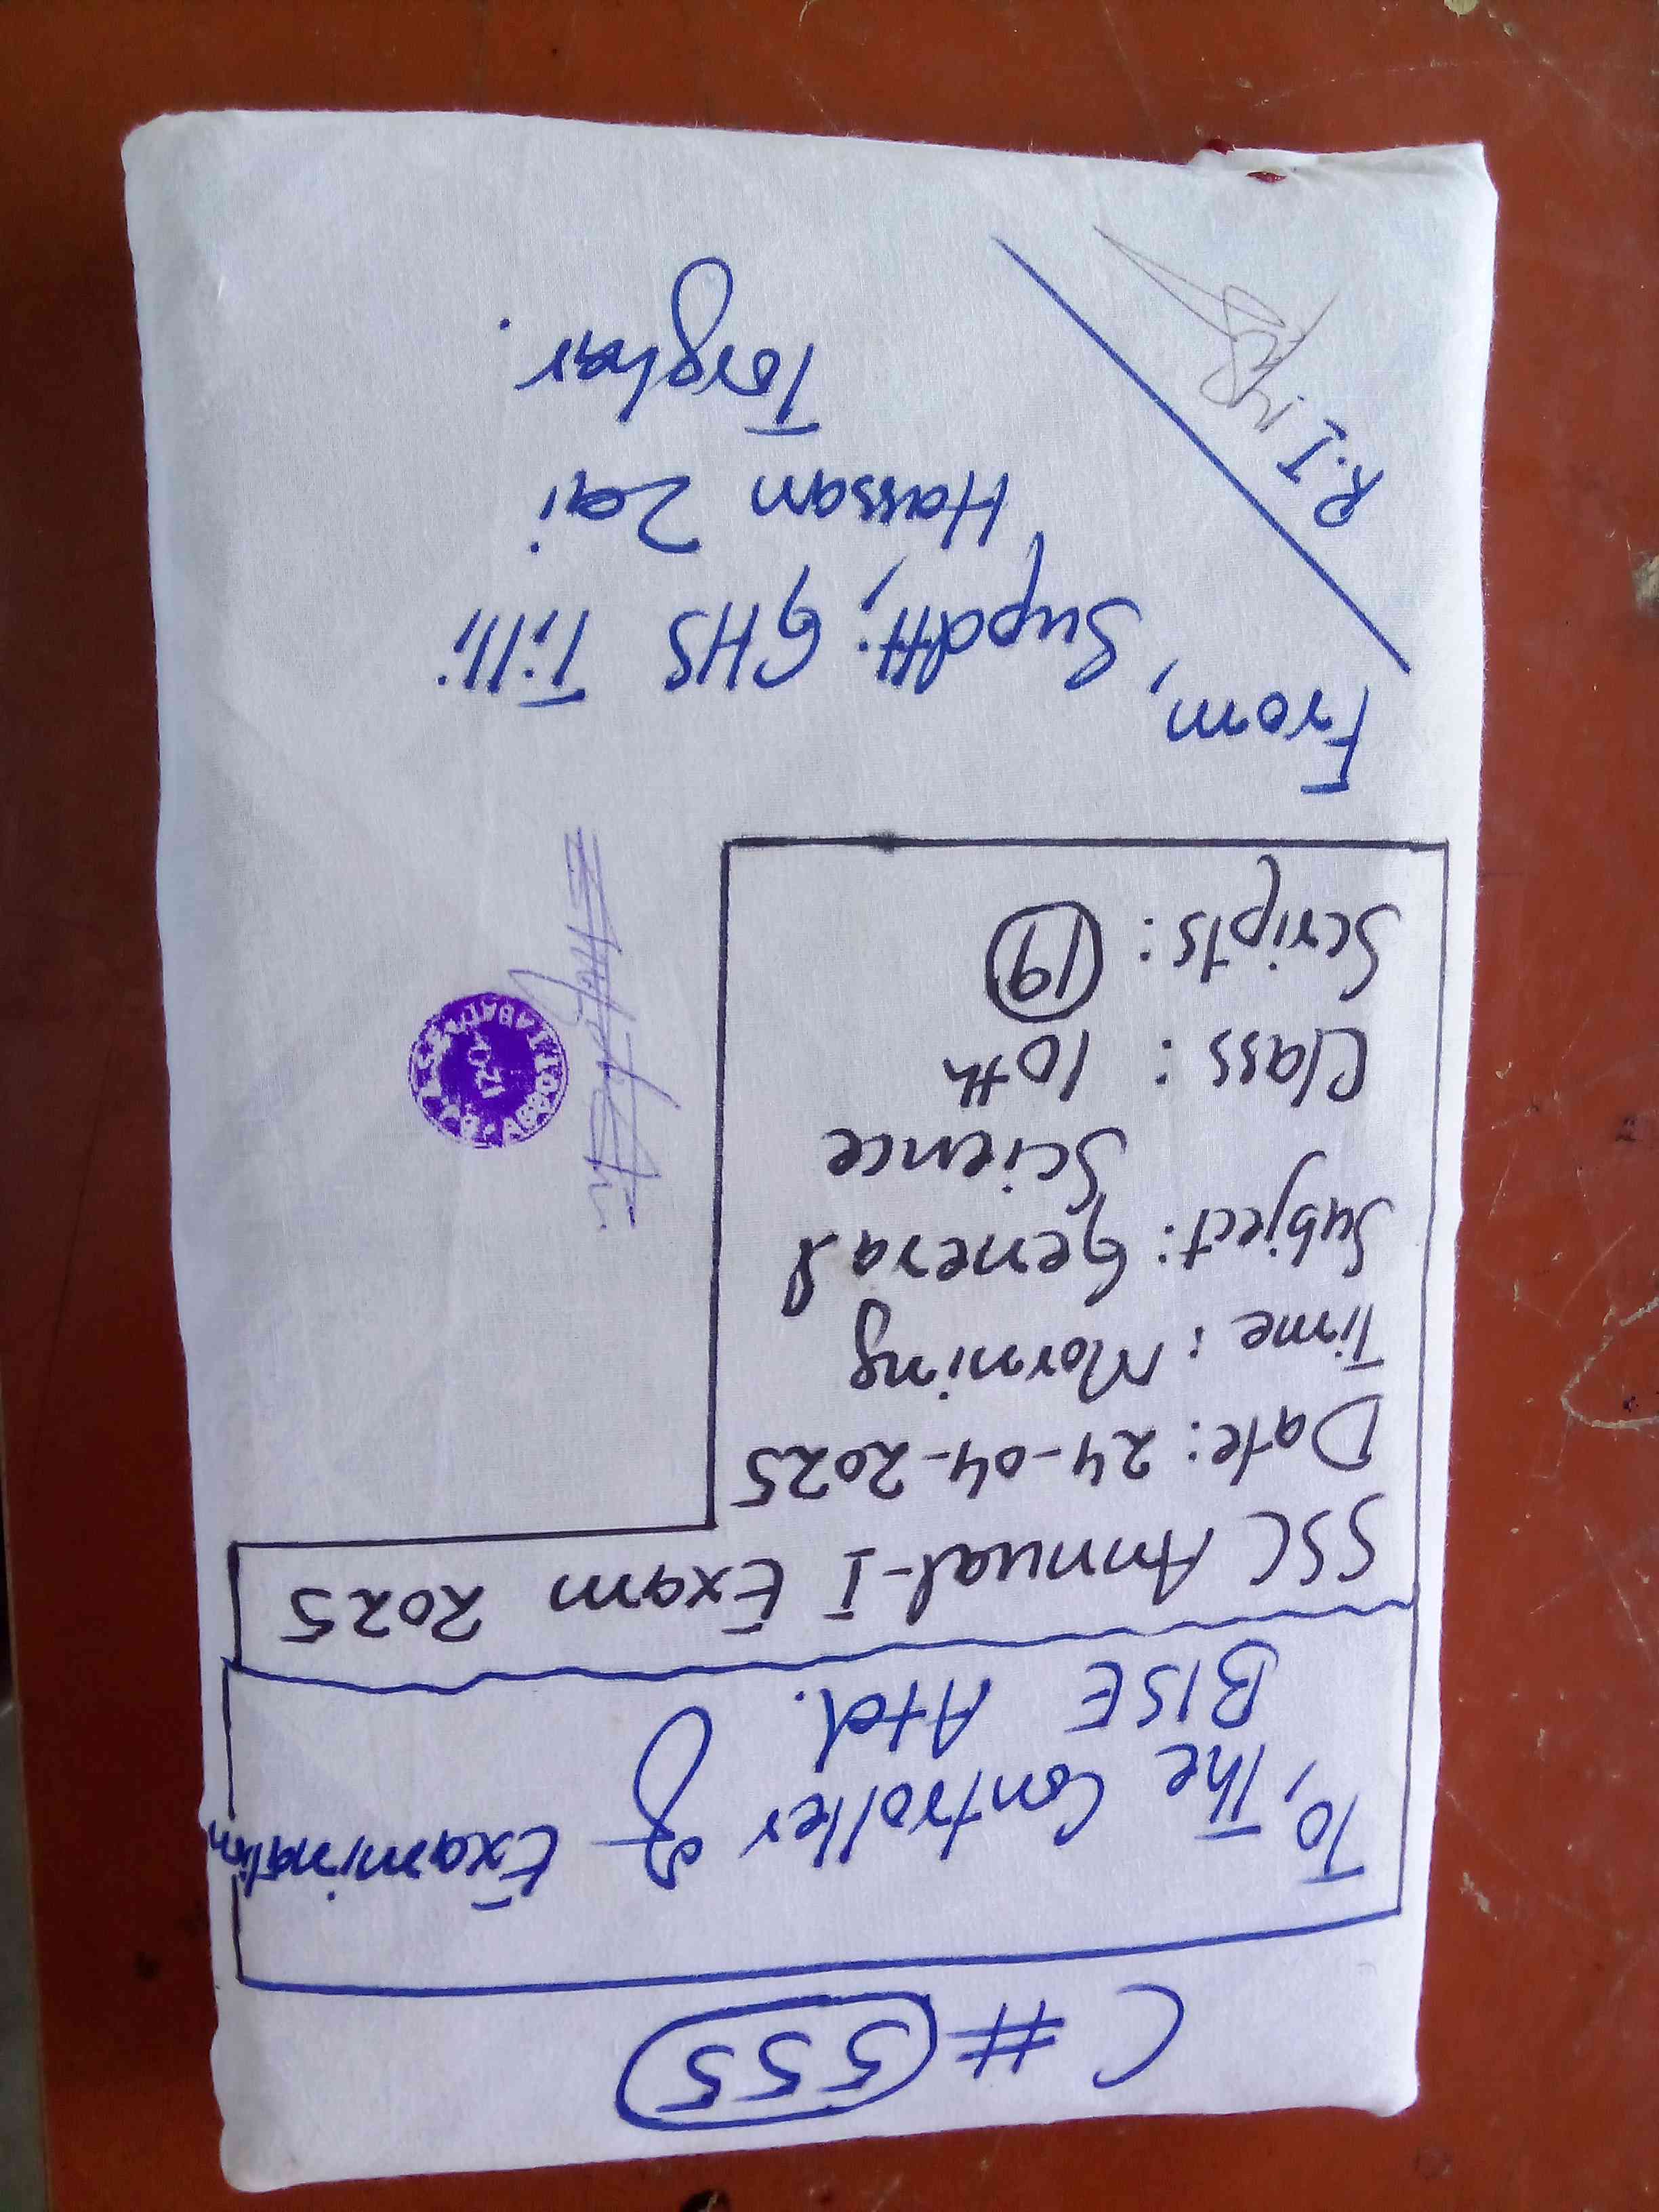 C # 555
To, The Controller of Examination
BISE Atd.
SSC Annual-I Exam 2025
Date: 24-04-2025
Time: Morning
Subject: General
Science
Class: 10th
Scripts: 19
From,
Supdtt; GHS Tilli
Hassan Zai
Torghar.
R.I